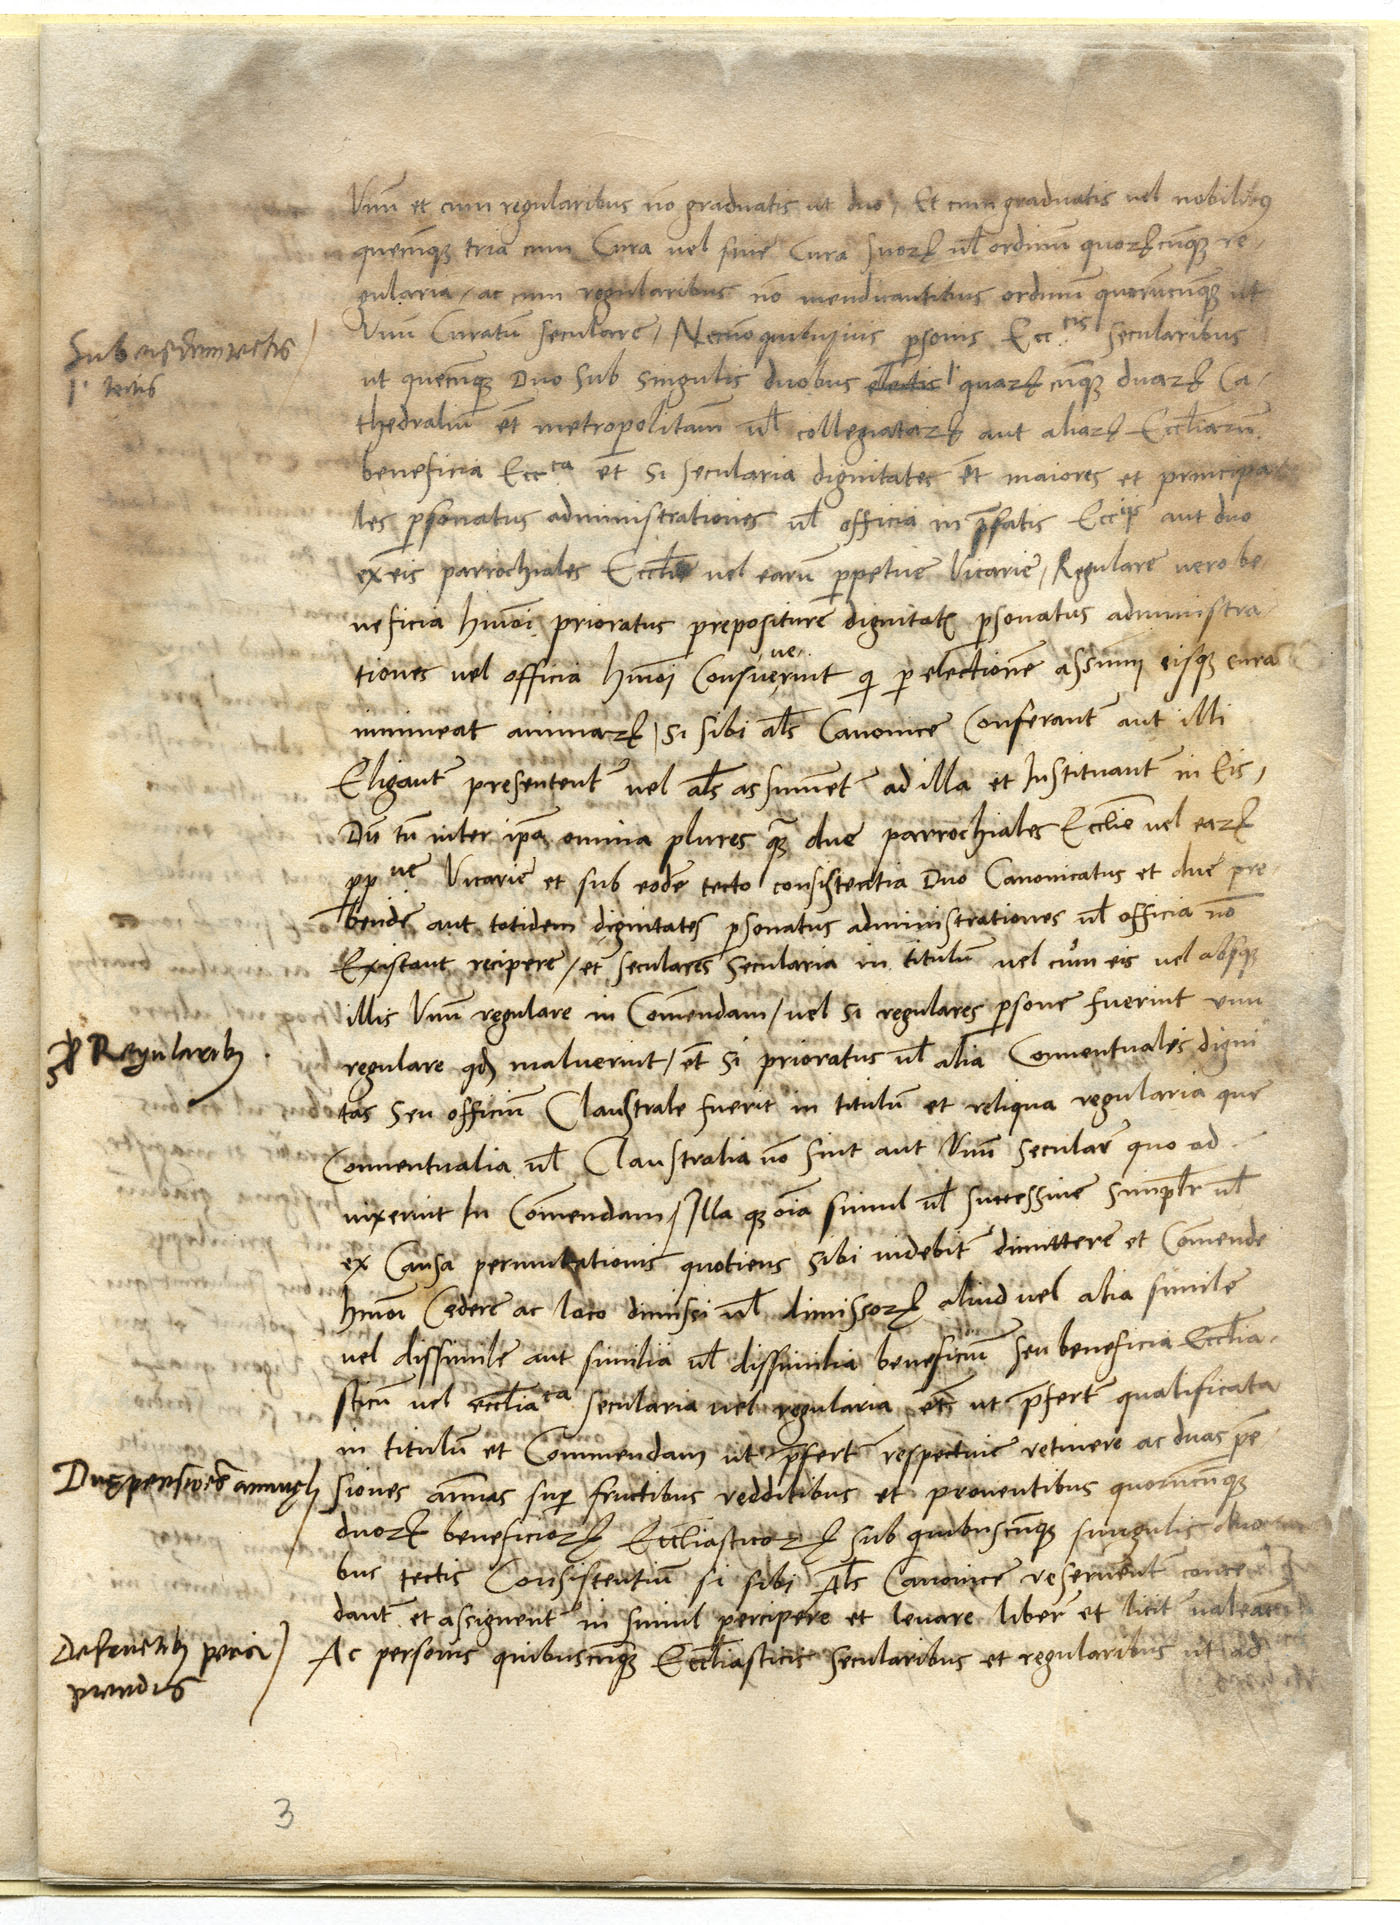 Vnu͂ et cum regularibus no͂ graduatis ut duo / Et cum graduatis vel nobilibus
quecu͂qꝫ tria cum Cura vel sine Cura suoꝝ ul̃ ordinu͂ quoꝝcu͂qꝫ re/
gularia / ac cum regularibus no͂ mendicantibus ordinu͂ quorumcu͂qꝫ ut
Vnu͂ Curatu͂ seculare / Necno͂ quibusuis p̱sonis Ecc.cis secularibus
Sub
tectis
ut quecu͂qꝫ Duo sub singulis duobus quaꝝcu͂qꝫ duaꝝ Ca/
thedraliu͂ et͂ metropolitan͂ ul̃ collegiataꝝ aut aliaꝝ Eccl̃iaru͂
beneficia Ecc.ca et͂ si secularia dignitates et͂ maiores et principa
les p̱sonatus administrationes ul̃ officia in p͂fatis Ecc.iis aut duo
ex eis parrochiales Eccl̃ie vel earu͂ p̱petue Vicarie / Regulare vero be/
neficia hm̃oi prioratus prepositure dignitates p̱sonatus administra
tiones vel officia hm̃oi Consueuerint qi p̱ electione͂ assumi eisqꝫ cura
immineat animaꝝ / si sibi al̃s Canonice Conferant͂ aut illi
Eligant͂ presentent͂ vel al̃s assumet͂ ad illa et Instituant͂ in Eis /
Du͂ tn͂ inter ip̃a omnia plures q͂ due parrochiales Eccl̃ie vel eaꝝ
p̱p.ue Vicarie et sub eode͂ tecto consistentia Duo Canonicatus et due pre
bende aut totidem dignitates p̱sonatus administrationes ul̃ officia no͂
Existant recipere / et seculares secularia in titulu͂ vel cum eis vel absqꝫ
illis Vnu͂ regulare in Com͂endam / vel si regulares p̱sone fuerint unu
Regularib
regulare qd͂ maluerint / et͂ si prioratus ul̃ alia Conuentualis digni
tas seu officiu͂ Claustrale fuerit in titulu͂ et reliqua regularia que
Conuentualia ul̃ Claustralia no͂ sint aut Vnu͂ seculare quo ad
uixerint In Com͂endam / Illa qꝫ o͂ia simul ul̃ successiue simpl̃r ul̃
ex Causa permutationis quotiens sibi uidebit͂ dimittere et Com͂ende
hm̃oi Cedere ac loco dimissi ul̃ dimissoꝝ aliud vel alia simile
vel dissimile aut similia ul̃ dissimilia beneficiu͂ seu beneficia Eccl̃ia/
sticu͂ vel eccl̃ia.ca secularia vel regularia et͂ ut p͂fert͂ qualificata
in titulu͂ et Commendam ut p͂fert͂ respectiue retinere ac duas pe͂
Duę pensiones annuęl
siones annuas sup̱ fructibus redditibus et prouentibus quorumcu͂qꝫ
duoꝝ beneficioꝝ Eccl̃iasticoꝝ sub quibuscu͂qꝫ singulis duo
bus tectis Consistentiu͂ si sibi Al̃s Canonice reseruent͂ conce
dant͂ et assignent͂ in simul percipere et leuare liber͂ et licit͂ valeant
De fructib percipiendis
Ac personis quibuscu͂qꝫ Eccl̃iasticis secularibus et regularibus ut ad
3